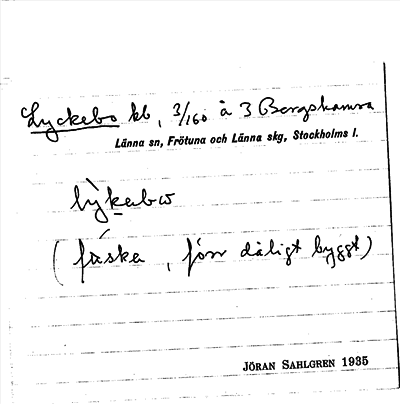 Lyckebo kb, 3/160 à 3 Bergshamra
Länna sn, Frötuna och Länna skg, Stockholms l.
lỳkabω
(fäska, förr dåligt byggt)
JÖRAN SAHLGREN 1935